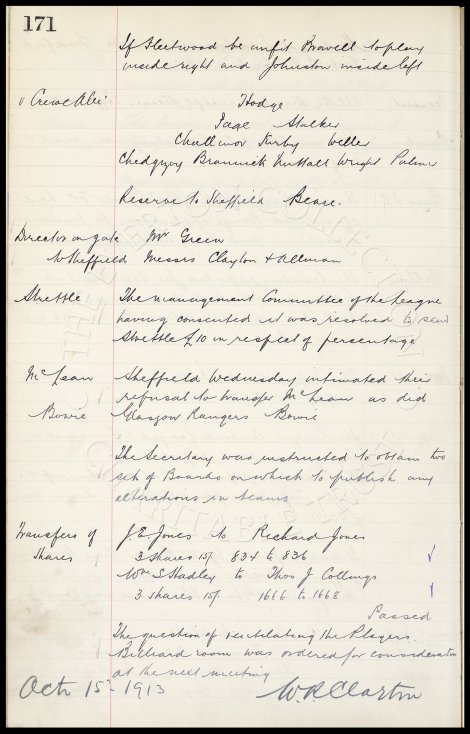 171
If Fleetwood be unfit Browell to play
inside right and Johnston inside left
v Crewe Alex
Hodge
Page Stalker
Challinor Kirby Weller
Chedgzoy Bramwick Nuttall Wright Palmer
Reserve to Sheffield Beare.
Director on gate Mr Green
to Sheffield Messrs Clayton & Allman
Strettle The management Committee of the League
having consented it was resolved to send
Strettle £10 in respect of percentage
McLean Sheffield Wednesday intimated their
refusal to transfer McLean as did
Bowie Glasgow Rangers Bowie
The Secretary was instructed to obtain two
sets of Boards on which to publish any
alterations in teams
Transfers of J E Jones to Richard Jones
Shares 3 shares 834 to 836
Wm S Hadley to Thos J Collings
3 shares 1666 to 1668
Passed
The question of ventilating the Players
Billiard room was ordered for consideration
at the next meeting
Oct 15 1913 W.R. Clayton